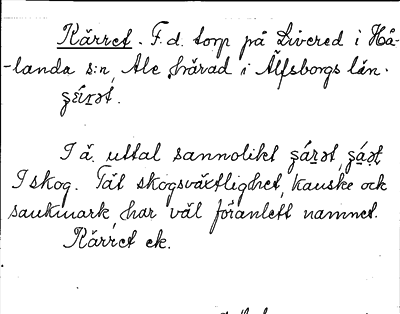 Kärret. F.d. torp på Livered i Hå-
-landa s:n, Ale härad i Älfsborgs län.
I ä. uttal sannolikt
I skog. Tät skogsväxtlighet, kanske ock
sankmark, har väl föranlett namnet.
Kärret ek.